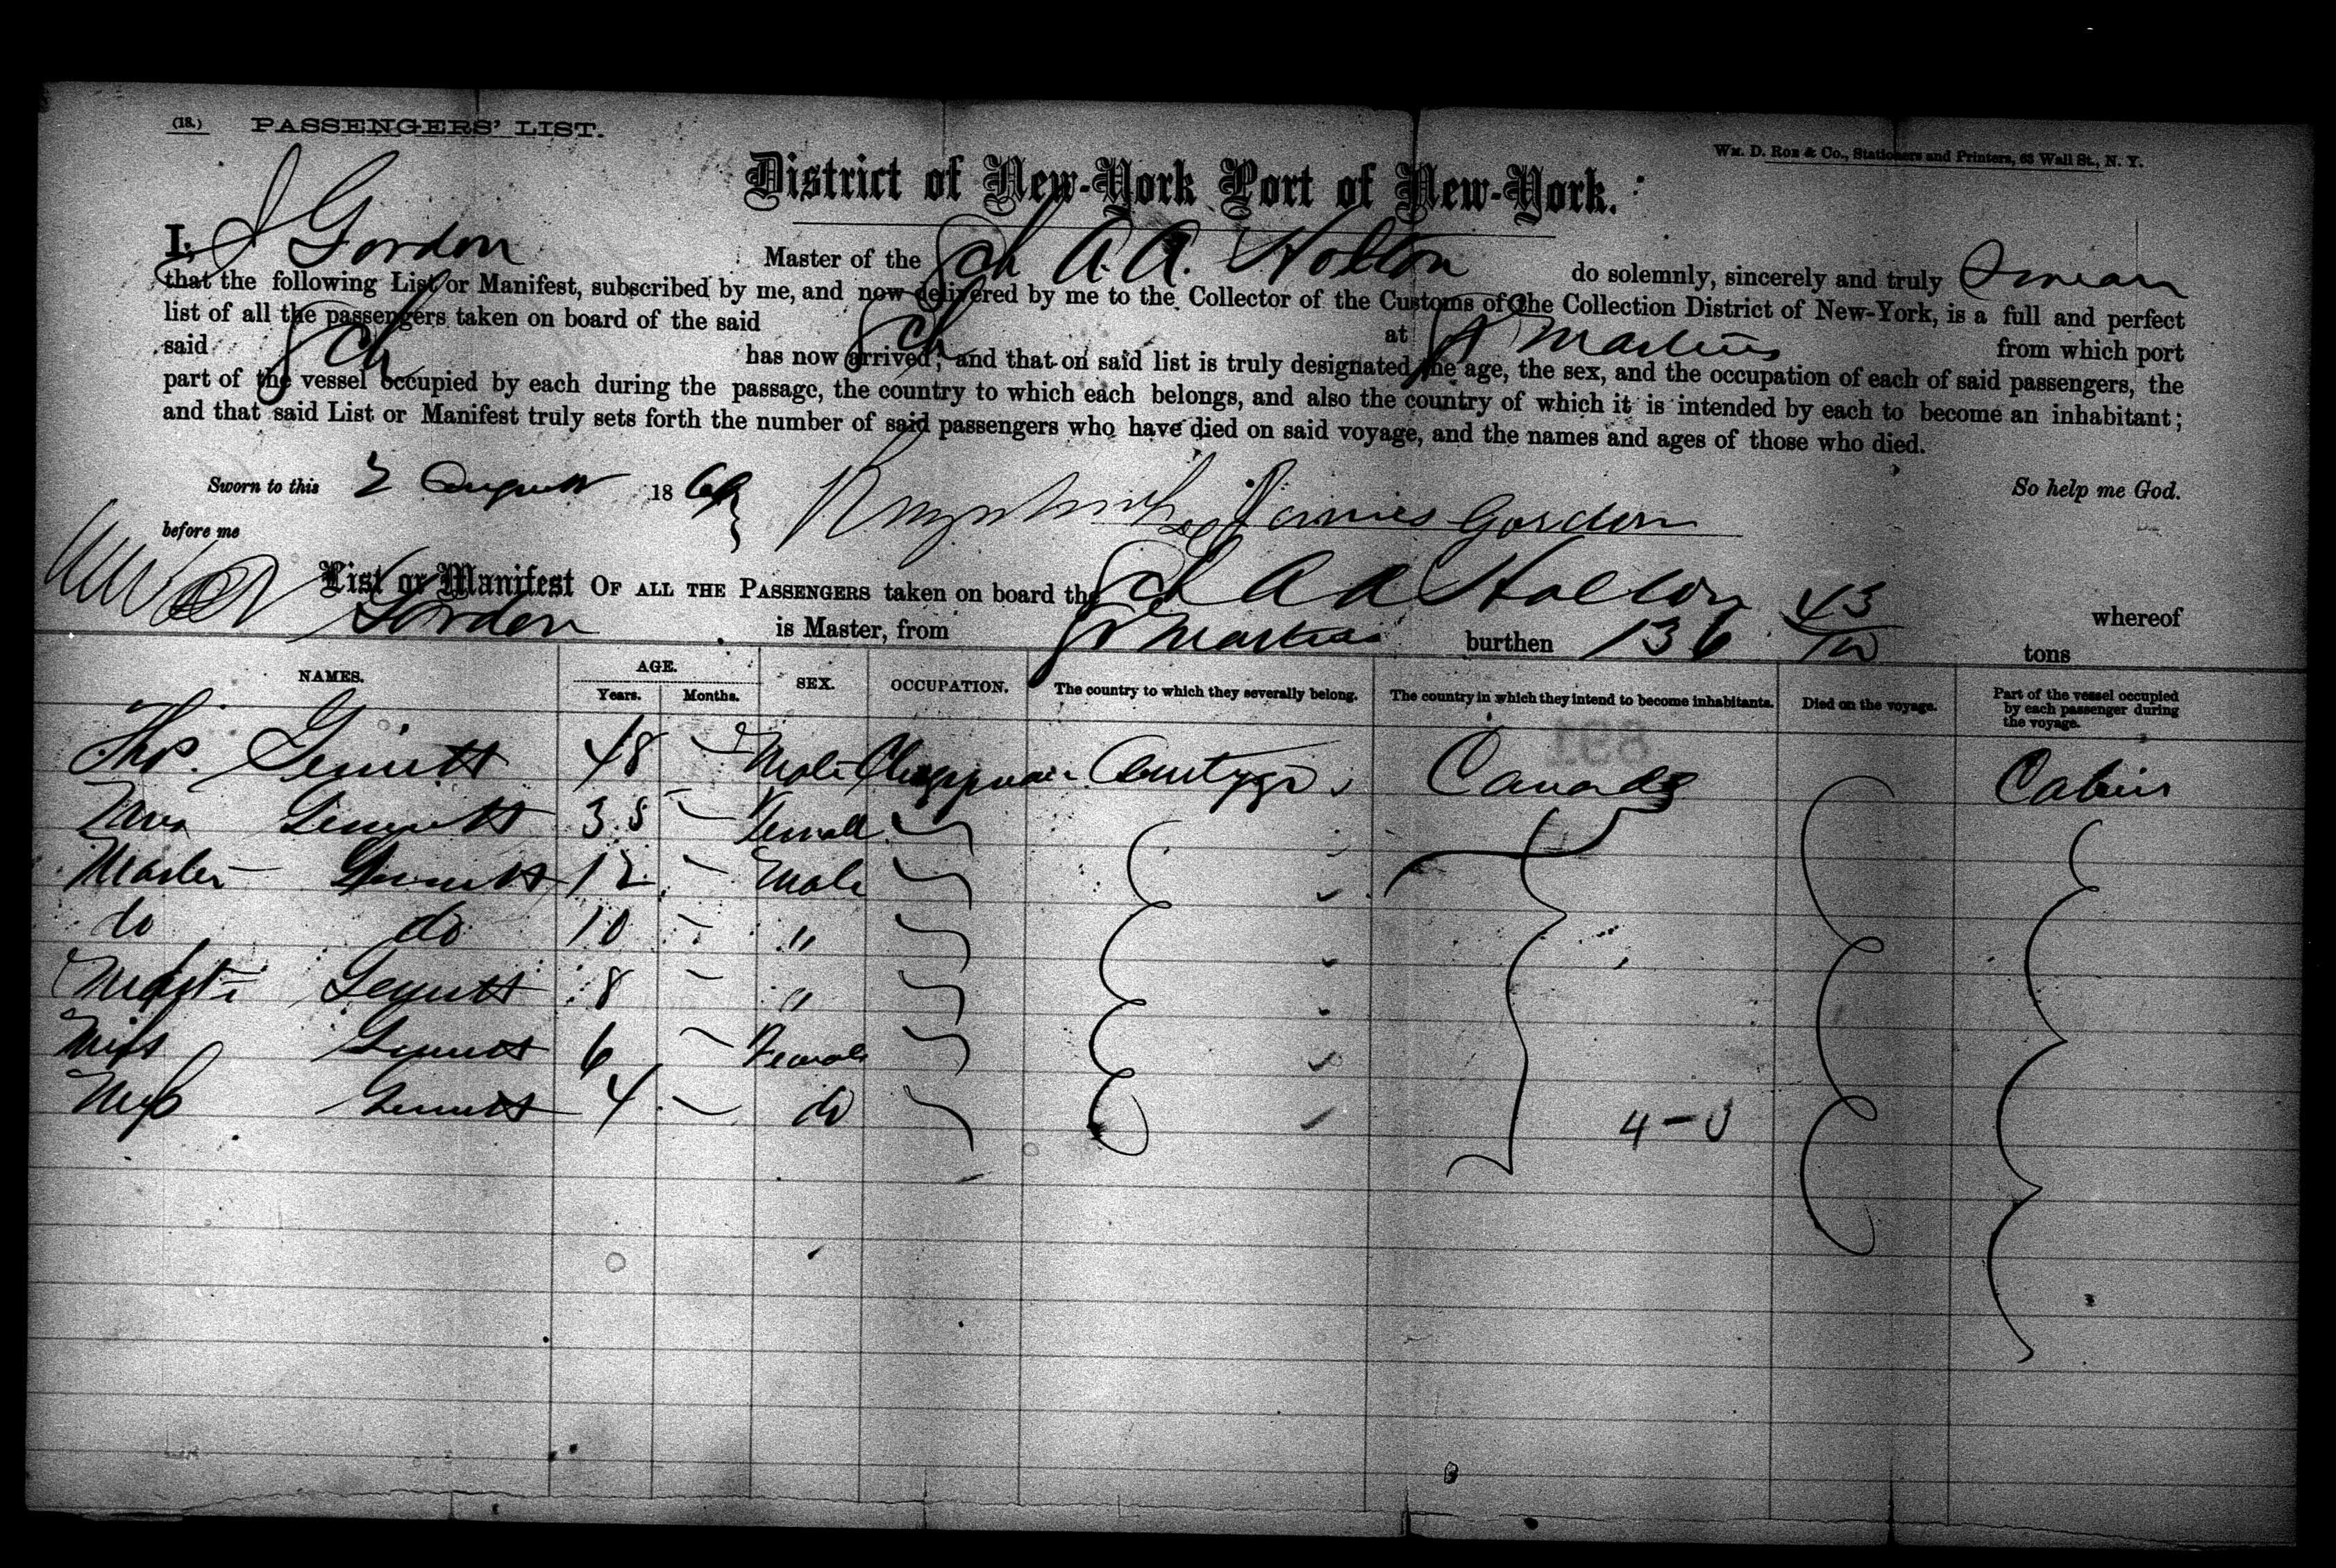 (18.) PASSENGERS' LIST.
Wm. D. Roe & Co., Stationers and Printers, 63 Wall St., N. Y.
District of New-York Port of New-York.
I, J Gordon Master of the Sch A. A. Holton do solemnly, sincerely and truly Swear
that the following List or Manifest, subscribed by me, and now delivered by me to the Collector of the Customs of the Collection District of New-York, is a full and perfect
list of all the passengers taken on board of the said Sch at St Martins from which port
said Sch has now arrived; and that on said list is truly designated the age, the sex, and the occupation of each of said passengers, the
part of the vessel occupied by each during the passage, the country to which each belongs, and also the country of which it is intended by each to become an inhabitant;
and that said List or Manifest truly sets forth the number of said passengers who have died on said voyage, and the names and ages of those who died.
Sworn to this 2 August 1869 So help me God.
before me James Gordon
List or Manifest OF ALL THE PASSENGERS taken on board the Sch A A Holton whereof
Gordon is Master, from St Martins burthen 136 43/100 tons
NAMES. AGE. Years. Months. SEX. OCCUPATION. The country to which they severally belong. The country in which they intend to become inhabitants. Died on the voyage. Part of the vessel occupied by each passenger during the voyage.
Thos. 48 Male Clergyman Canada Cabin
Mrs 35 Female
Master 12 Male
do do 10 "
Mast 8 "
Miss 6 Female
Miss 4 do
4 -